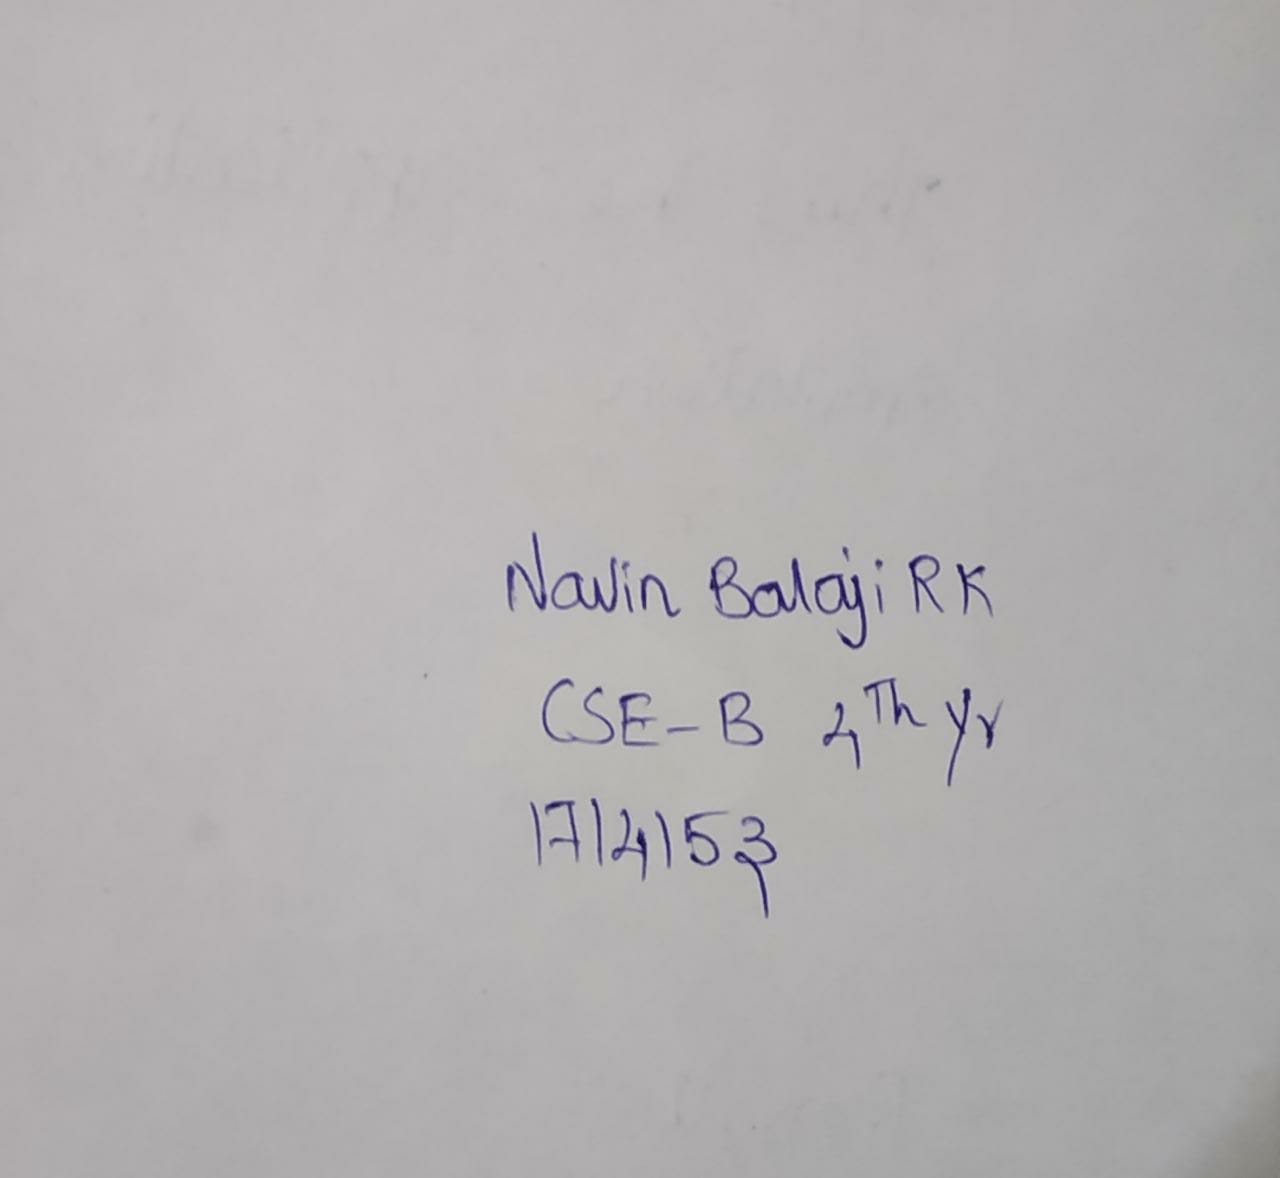 Navin Balaji RK
CSE-B 4Th yr
1714153